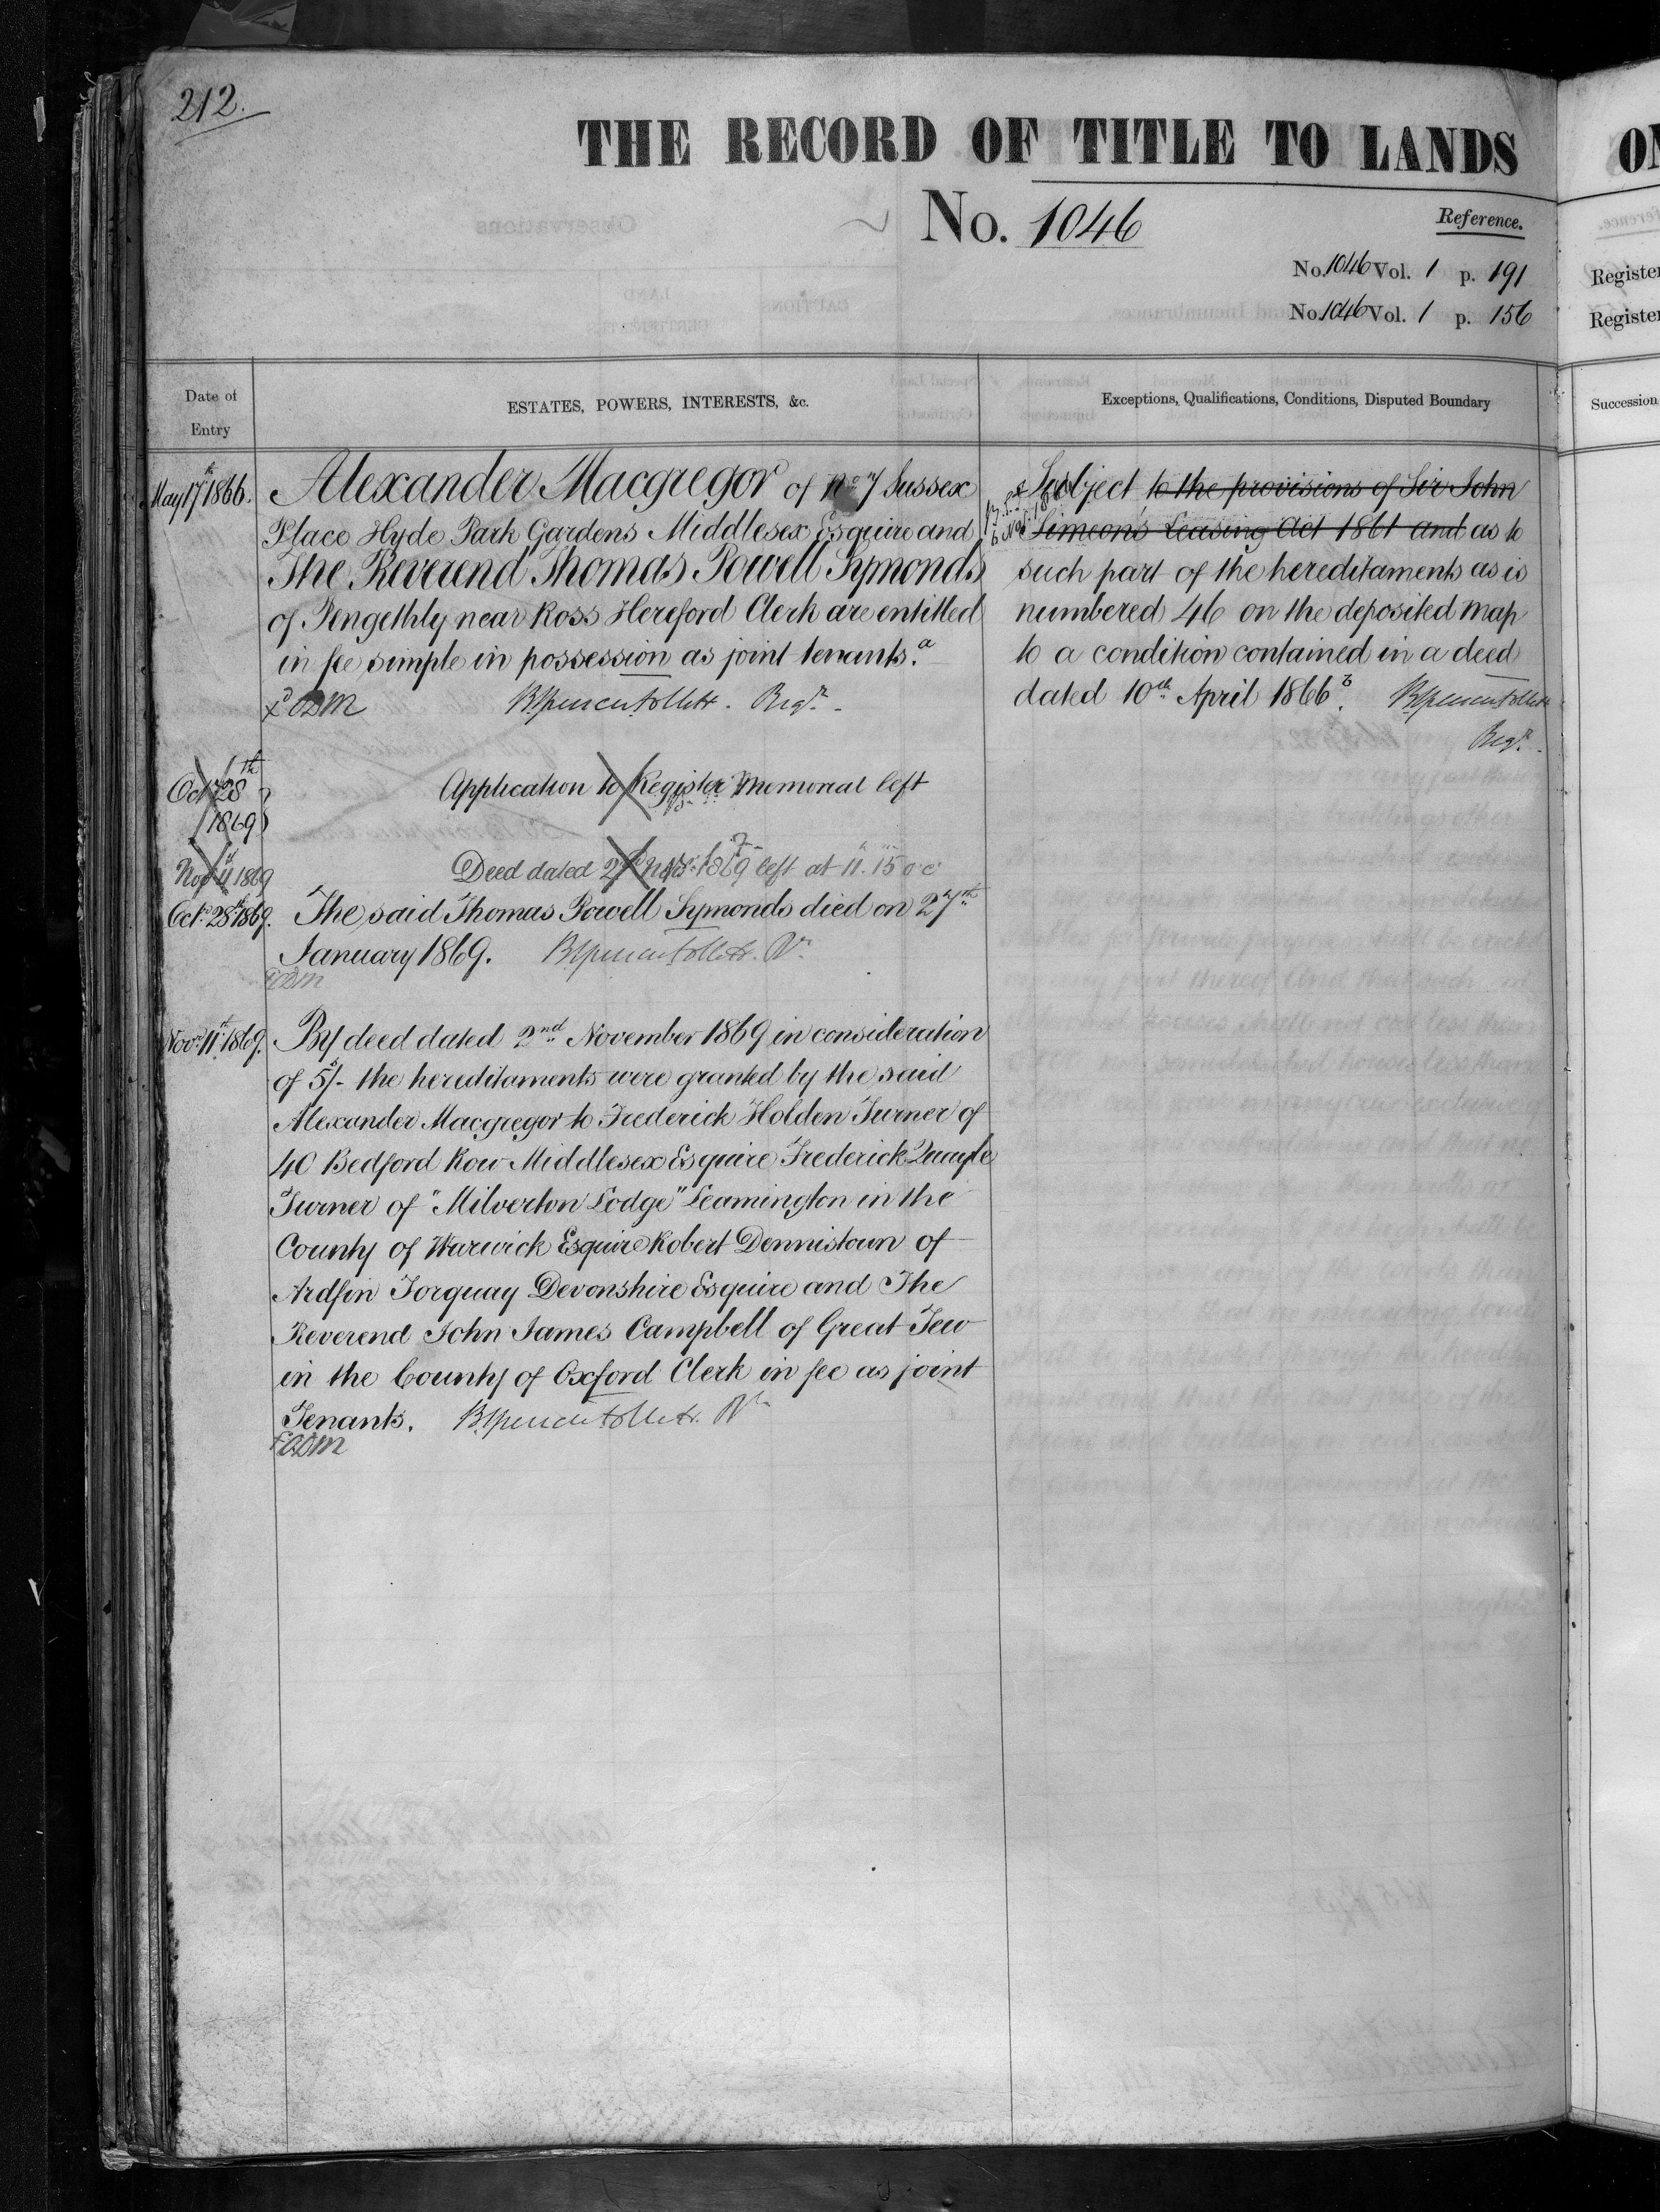 212.
THE RECORD OF TITLE TO LANDS
No. 1046
Reference.
No. 1046 Vol. 1 p. 191
No. 1046 Vol. 1 p. 156
Register
Register
Date of Entry
ESTATES, POWERS, INTERESTS, &c.
Exceptions, Qualifications, Conditions, Disputed Boundary
Succession
May 17th 1866.
Alexander Macgregor of No. 7 Sussex
Place Hyde Park Gardens Middlesex Esquire and
The Reverend Thomas Powell Symonds
of Pengethly near Ross Hereford Clerk are entitled
in fee simple in possession as joint tenants. a
Regr.
Subject to the provisions of Sir John
Simeon's Leasing Act 1861 and as to
such part of the hereditaments as is
numbered 46 on the deposited map
to a condition contained in a deed
dated 10th April 1866
Regr.
Oct 28th
1869
Application to Register Memorial left
Nov 11 1869
Deed dated 2nd Nov. 1869 left at 11.15 o'c
Oct. 28th 1869.
The said Thomas Powell Symonds died on 27th
January 1869.
Nov. 11th 1869.
By deed dated 2nd November 1869 in consideration
of 5/- the hereditaments were granted by the said
Alexander Macgregor to Frederick Holden Turner of
40 Bedford Row Middlesex Esquire Frederick Quayle
Turner of "Milverton Lodge" Leamington in the
County of Warwick Esquire Robert Dennistoun of
Ardfin Torquay Devonshire Esquire and The
Reverend John James Campbell of Great Tew
in the County of Oxford Clerk in fee as joint
Tenants.